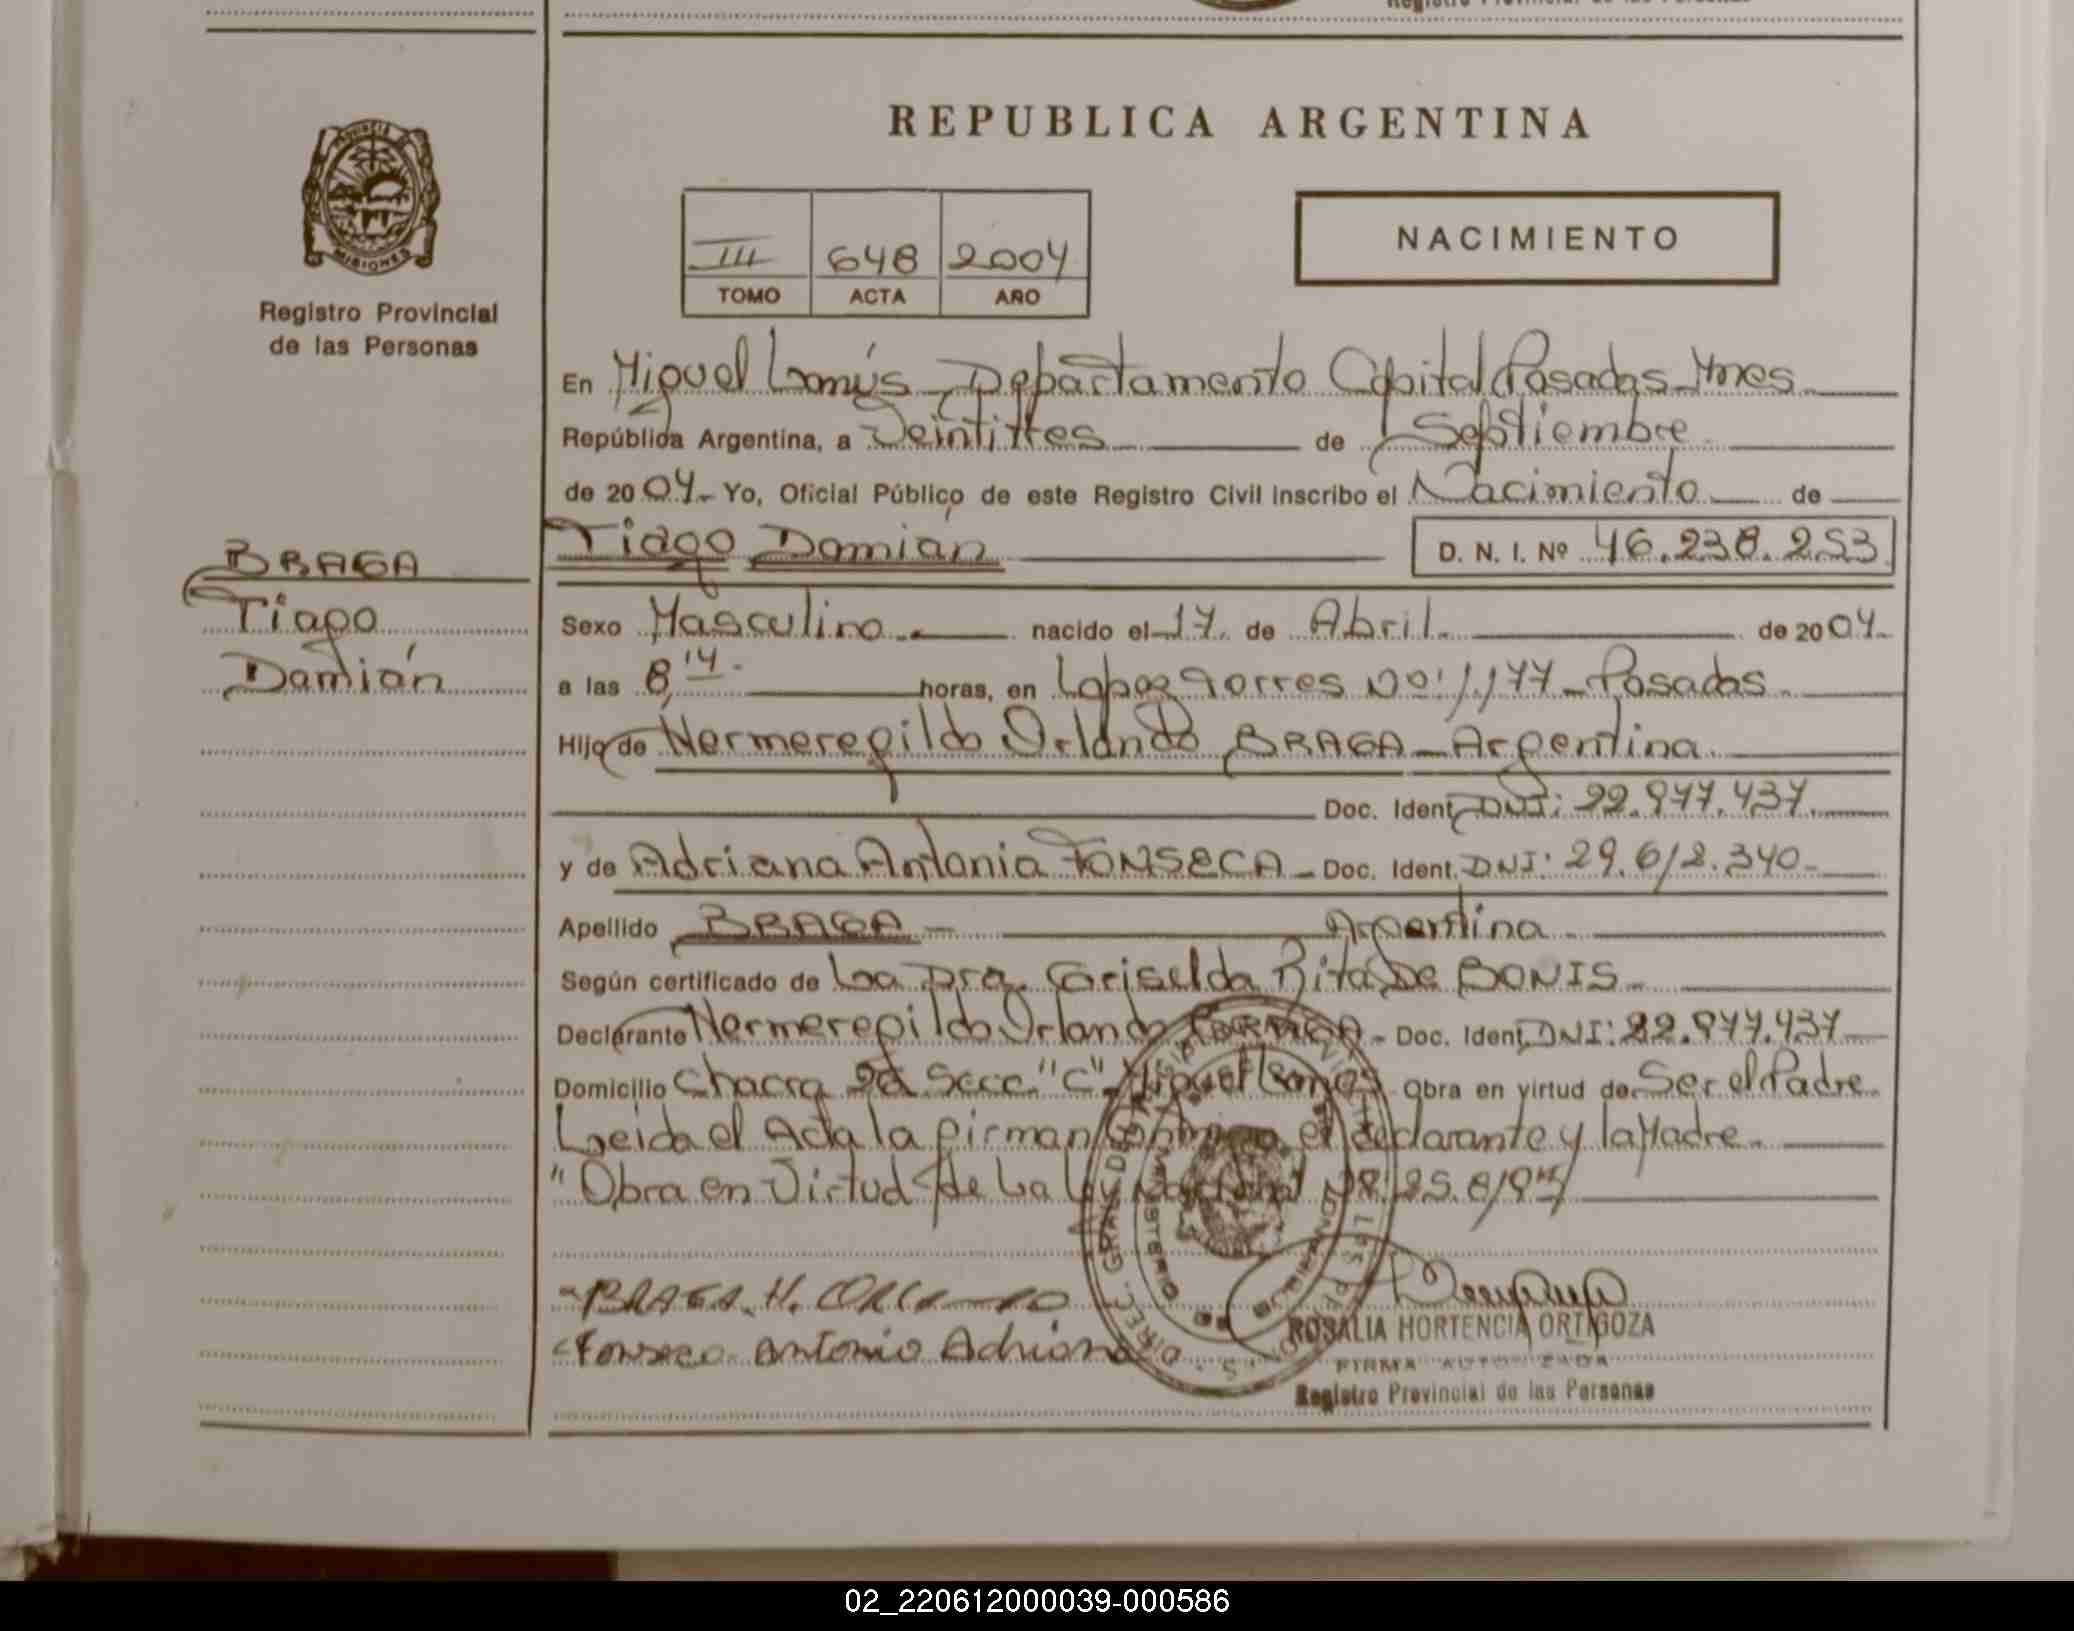 REPUBLICA ARGENTINA
PROVINCIA
MISIONES
Registro Provincial
de las Personas
III 648 2004
TOMO ACTA AÑO
NACIMIENTO
En Miguel Lanús Departamento Capital Posadas Mnes
República Argentina, a Veintitres de Septiembre
de 2004 Yo, Oficial Público de este Registro Civil inscribo el Nacimiento de
Tiago Damián D. N. I. Nº 46.238.253
BRAGA
Tiago
Damián
Sexo Masculino nacido el 17 de Abril de 2004
a las 8,14 horas, en Lopez Torres No: 1,177 Posadas
Hijo de Hermeregildo Orlando BRAGA Argentina
Doc. Ident. DNI: 22.977.437
y de Adriana Antonia FONSECA Doc. Ident. DNI: 29.612.340
Apellido BRAGA Argentina
Según certificado de La Dra. Griselda Rita De BONIS
Declarante Hermeregildo Orlando BRAGA Doc. Ident. DNI: 22.977.437
Domicilio Chacra Secc. "C" Miguel Lanús Obra en virtud de Ser el Padre
Leida el Acta la firman Conmigo el declarante y la Madre
"Obra en Virtud de La Ley Nacional Nº: 25.819"
BRAGA H. ORLANDO
Fonseca Antonia Adriana
ROSALIA HORTENCIA ORTIGOZA
FIRMA AUTORIZADA
Registro Provincial de las Personas
02_220612000039-000586